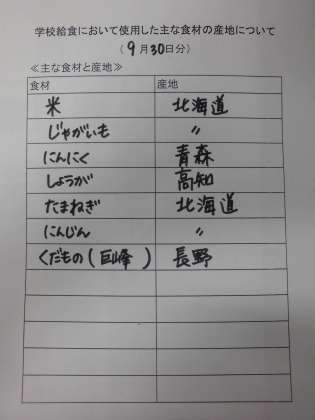 学校給食において使用した主な食材の産地について
(9月30日分)
≪主な食材と産地≫
食材 産地
米 北海道
じゃがいも 〃
にんにく 青森
しょうが 高知
たまねぎ 北海道
にんじん 〃
くだもの(巨峰) 長野